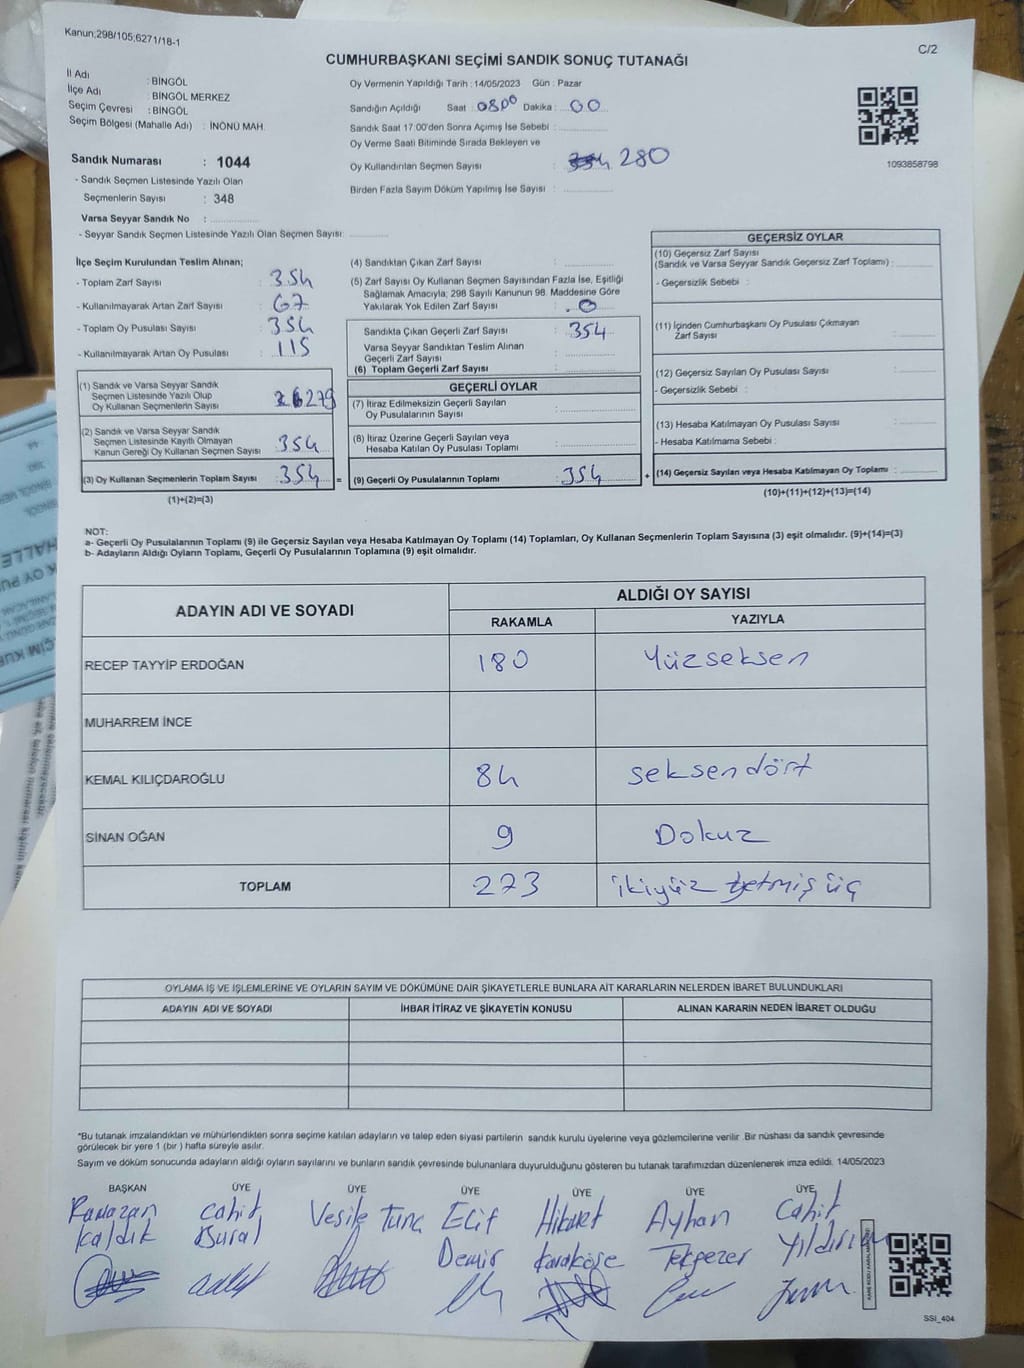 Kanun;298/105;6271/18-1
C/2
CUMHURBAŞKANI SEÇİMİ SANDIK SONUÇ TUTANAĞI
İl Adı : BİNGÖL
İlçe Adı : BİNGÖL MERKEZ
Seçim Çevresi : BİNGÖL
Seçim Bölgesi (Mahalle Adı) : İNÖNÜ MAH.
Sandık Numarası : 1044
- Sandık Seçmen Listesinde Yazılı Olan
Seçmenlerin Sayısı : 348
Varsa Seyyar Sandık No : ..............
- Seyyar Sandık Seçmen Listesinde Yazılı Olan Seçmen Sayısı: ..............
Oy Vermenin Yapıldığı Tarih : 14/05/2023 Gün : Pazar
Sandığın Açıldığı Saat : 0800 Dakika : 00
Sandık Saat 17:00'den Sonra Açımış İse Sebebi : ..............
Oy Verme Saati Bitiminde Sırada Bekleyen ve
Oy Kullandırılan Seçmen Sayısı : 280
Birden Fazla Sayım Döküm Yapılmış İse Sayısı : ..............
1093858798
İlçe Seçim Kurulundan Teslim Alınan;
- Toplam Zarf Sayısı : 354
- Kullanılmayarak Artan Zarf Sayısı : 67
- Toplam Oy Pusulası Sayısı : 354
- Kullanılmayarak Artan Oy Pusulası : 115
(1) Sandık ve Varsa Seyyar Sandık
Seçmen Listesinde Yazılı Olup
Oy Kullanan Seçmenlerin Sayısı 279
(2) Sandık ve Varsa Seyyar Sandık
Seçmen Listesinde Kayıtlı Olmayan
Kanun Gereği Oy Kullanan Seçmen Sayısı : 354
(3) Oy Kullanan Seçmenlerin Toplam Sayısı : 354
(1)+(2)=(3)
(4) Sandıktan Çıkan Zarf Sayısı : ..............
(5) Zarf Sayısı Oy Kullanan Seçmen Sayısından Fazla İse, Eşitliği
Sağlamak Amacıyla; 298 Sayılı Kanunun 98. Maddesine Göre
Yakılarak Yok Edilen Zarf Sayısı : 0
Sandıkta Çıkan Geçerli Zarf Sayısı : 354
Varsa Seyyar Sandıktan Teslim Alınan
Geçerli Zarf Sayısı : ..............
(6) Toplam Geçerli Zarf Sayısı : ..............
GEÇERLİ OYLAR
(7) İtiraz Edilmeksizin Geçerli Sayılan
Oy Pusulalarının Sayısı : ..............
(8) İtiraz Üzerine Geçerli Sayılan veya
Hesaba Katılan Oy Pusulası Toplamı : ..............
= (9) Geçerli Oy Pusulalarının Toplamı : 354 +
GEÇERSİZ OYLAR
(10) Geçersiz Zarf Sayısı
(Sandık ve Varsa Seyyar Sandık Geçersiz Zarf Toplamı) : ..............
- Geçersizlik Sebebi :
(11) İçinden Cumhurbaşkanı Oy Pusulası Çıkmayan
Zarf Sayısı : ..............
(12) Geçersiz Sayılan Oy Pusulası Sayısı : ..............
- Geçersizlik Sebebi :
(13) Hesaba Katılmayan Oy Pusulası Sayısı : ..............
- Hesaba Katılmama Sebebi :
(14) Geçersiz Sayılan veya Hesaba Katılmayan Oy Toplamı : ..............
(10)+(11)+(12)+(13)=(14)
NOT:
a- Geçerli Oy Pusulalarının Toplamı (9) ile Geçersiz Sayılan veya Hesaba Katılmayan Oy Toplamı (14) Toplamları, Oy Kullanan Seçmenlerin Toplam Sayısına (3) eşit olmalıdır. (9)+(14)=(3)
b- Adayların Aldığı Oyların Toplamı, Geçerli Oy Pusulalarının Toplamına (9) eşit olmalıdır.
ADAYIN ADI VE SOYADI ALDIĞI OY SAYISI
RAKAMLA YAZIYLA
RECEP TAYYİP ERDOĞAN 180 Yüzseksen
MUHARREM İNCE
KEMAL KILIÇDAROĞLU 84 seksendört
SİNAN OĞAN 9 Dokuz
TOPLAM 273 ikiyüz yetmiş üç
OYLAMA İŞ VE İŞLEMLERİNE VE OYLARIN SAYIM VE DÖKÜMÜNE DAİR ŞİKAYETLERLE BUNLARA AİT KARARLARIN NELERDEN İBARET BULUNDUKLARI
ADAYIN ADI VE SOYADI İHBAR İTİRAZ VE ŞİKAYETİN KONUSU ALINAN KARARIN NEDEN İBARET OLDUĞU
*Bu tutanak imzalandıktan ve mühürlendikten sonra seçime katılan adayların ve talep eden siyasi partilerin sandık kurulu üyelerine veya gözlemcilerine verilir. Bir nüshası da sandık çevresinde
görülecek bir yere 1 (bir ) hafta süreyle asılır.
Sayım ve döküm sonucunda adayların aldığı oyların sayılarını ve bunların sandık çevresinde bulunanlara duyurulduğunu gösteren bu tutanak tarafımızdan düzenlenerek imza edildi. 14/05/2023
BAŞKAN ÜYE ÜYE ÜYE ÜYE ÜYE ÜYE
Ramazan cahit Vesile Tunç Elif Hikmet Ayhan Cahit
Kaldık Bural Demir Karaköse Tekgezer Yıldırım
SSI_404